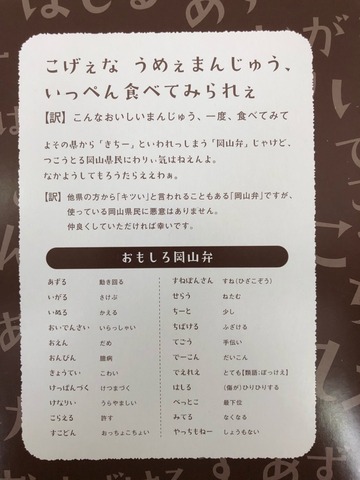 こげぇな うめぇまんじゅう、
いっぺん食べてみられぇ
【訳】こんなおいしいまんじゅう、一度、食べてみて
よその県から「きちー」といわれっしまう「岡山弁」じゃけど、
つこうとる岡山県民にわりぃ気はねえんよ。
なかようしてもろうたらええわぁ。
【訳】他県の方から「キツい」と言われることもある「岡山弁」ですが、
使っている岡山県民に悪意はありません。
仲良くしていただければ幸いです。
おもしろ岡山弁
あずる 動き回る
いがる さけぶ
いぬる かえる
おいでんさい いらっしゃい
おえん だめ
おんびん 臆病
きょうてい こわい
けっぱんづく けつまづく
けなりい うらやましい
こらえる 許す
すこどん おっちょこちょい
すねぼんさん すね(ひざこぞう)
せらう ねたむ
ちーと 少し
ちばける ふざける
てごう 手伝い
でーこん だいこん
でえれえ とても【類語:ぼっけえ】
はしる (傷が)ひりひりする
べっとこ 最下位
みてる なくなる
やっちもねー しょうもない